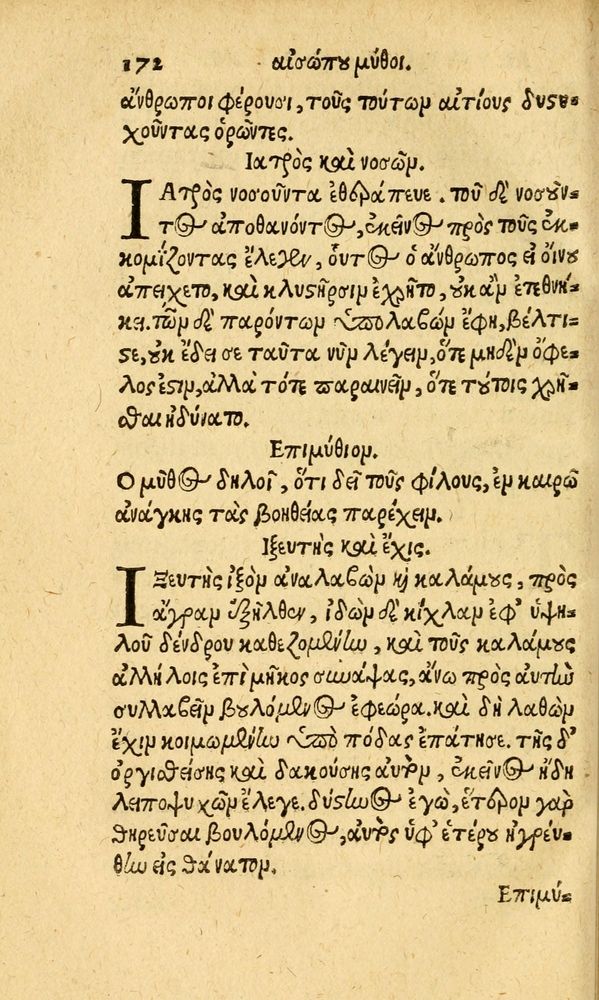 172 αἰσώπου μύθοι.
ἄνθρωποι φέρουσι, τοὺς τούτων αἰτίους δυστυ-
χοῦντας ὁρῶντες.
Ιατρὸς καὶ νοσῶν.
ΙΑτρὸς νοσοῦντα ἐθεράπευε. τοῦ δὲ νοσοῦν-
τος ἀποθανόντος, ἐκεῖνος πρὸς τοὺς ἐκ-
κομίζοντας ἔλεγεν, οὗτος ὁ ἄνθρωπος εἰ οἴνου
ἀπείχετο, καὶ κλυστῆρσιν ἐχρῆτο, οὐκ ἂν ἐτεθνή-
κει. τῶν δὲ παρόντων ὑπολαβών ἔφη, βέλτι-
στε, οὐκ ἔδει σε ταῦτα νῦν λέγειν, ὅτε μηδὲν ὄφε-
λος ἐστιν, ἀλλὰ τότε παραινεῖν, ὅτε τούτοις χρῆ-
σθαι ἠδύνατο.
Επιμύθιον.
Ο μῦθος δηλοῖ, ὅτι δεῖ τοὺς φίλους, ἐν καιρῷ
ἀνάγκης τὰς βοηθείας παρέχειν.
Ιξευτὴς καὶ ἔχις.
ΙΞευτὴς ἰξὸν ἀναλαβὼν καὶ καλάμους, πρὸς
ἄγραν ἐξῆλθεν, ἰδὼν δὲ κίχλαν ἐφ’ ὑψη-
λοῦ δένδρου καθεζομένην, καὶ τοὺς καλάμους
ἀλλήλοις ἐπὶ μῆκος συνάψας, ἄνω πρὸς αὐτὴν
συλλαβεῖν βουλόμενος ἐφεώρα. καὶ δὴ λαθὼν
ἔχιν κοιμωμένην ὑπὸ πόδας ἐπάτησε. τῆς δ’
ὀργισθείσης καὶ δακούσης αὐτὸν, ἐκεῖνος ἤδη
λειποψυχῶν ἔλεγε. δύστηνος ἐγὼ, ἕτερον γὰρ
θηρεῦσαι βουλόμενος, αὐτὸς ὑφ’ ἑτέρου ἠγρεύ-
θην εἰς θάνατον.
Επιμύ-